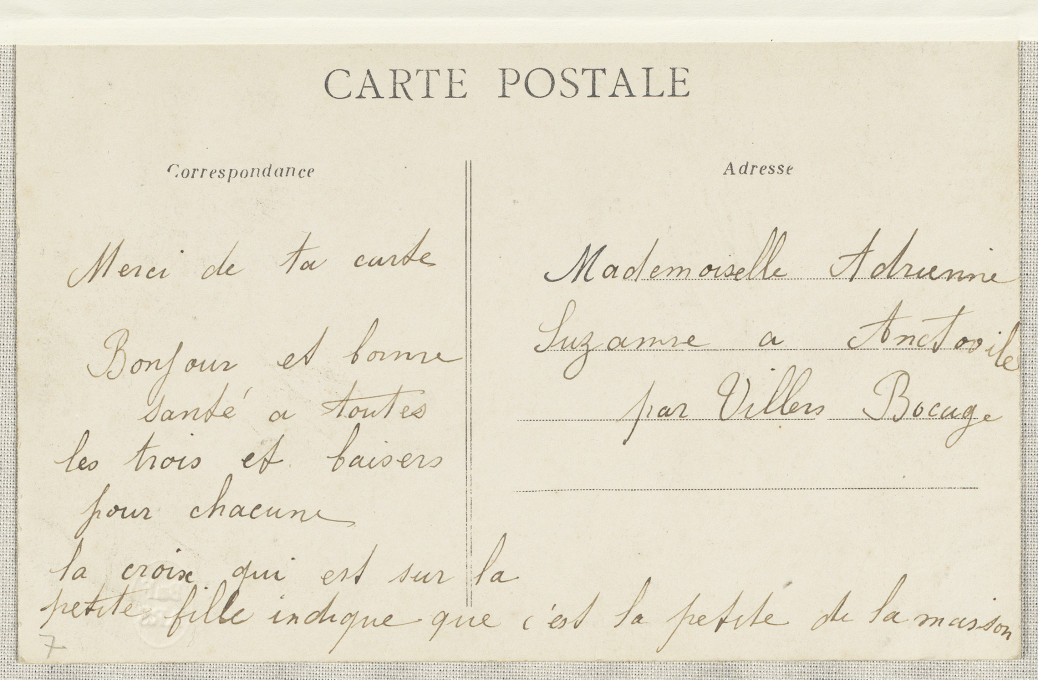 CARTE POSTALE
Correspondance
Merci de ta carte
Bonjour et bonne
santé a toutes
les trois et baisers
pour chacune
la croix qui est sur la
petite fille indique que c'est la petite de la maison
7
Adresse
Mademoiselle Adrienne
Suzanne a Anctovile
par Villers Bocage